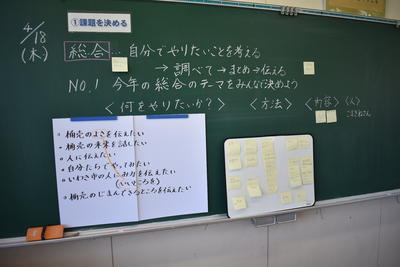 ①課題を決める
4/18
(木)
総合…自分でやりたいことを考える
→調べて→まとめ→伝える
NO.1 今年の総合のテーマをみんなで決めよう
<何をやりたいか?> <方法> <内容> <人>
桶売のよさを伝えたい
桶売の未来を話したい
人に伝えたい
自分たちでやってみたい
いわき中の人にみ力を伝えたい
(いいところを)
桶売のじまんできるところを伝えたい